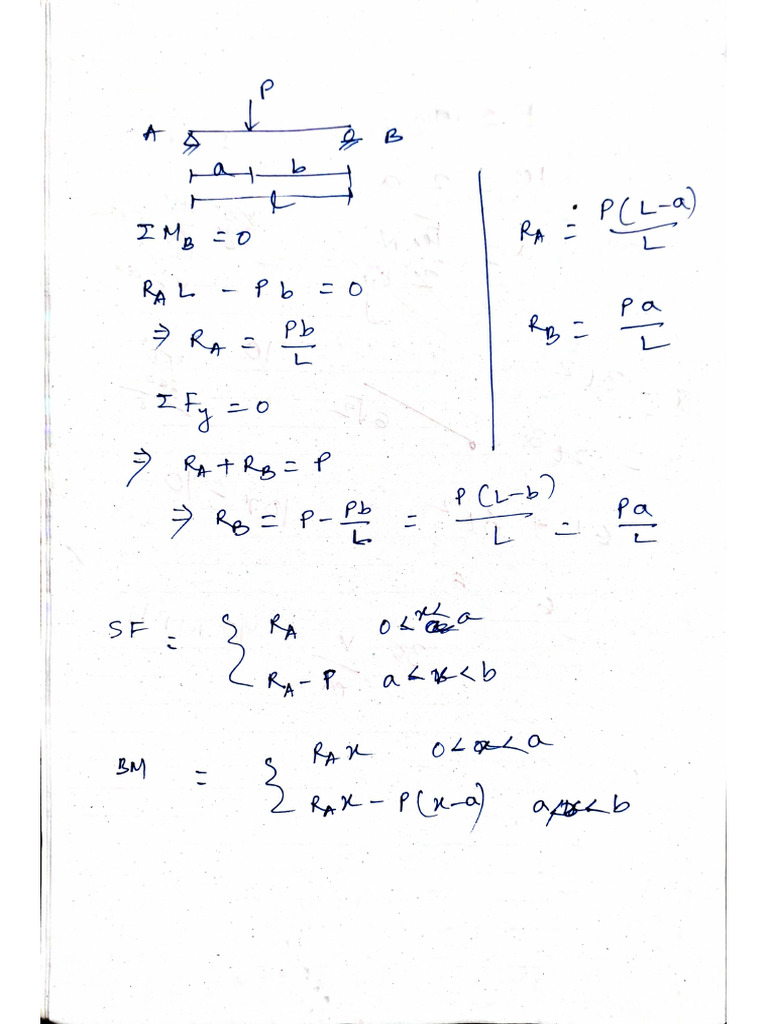 P
A B
a b
L
Σ M_B = 0
R_A L - P b = 0
⇒ R_A = Pb/L
Σ F_y = 0
⇒ R_A + R_B = P
⇒ R_B = P - Pb/L = P(L-b)/L = Pa/L
R_A = P(L-a)/L
R_B = Pa/L
SF = { R_A 0 < x < a
R_A - P a < x < b
BM = { R_A x 0 < x < a
R_A x - P(x-a) a < x < b